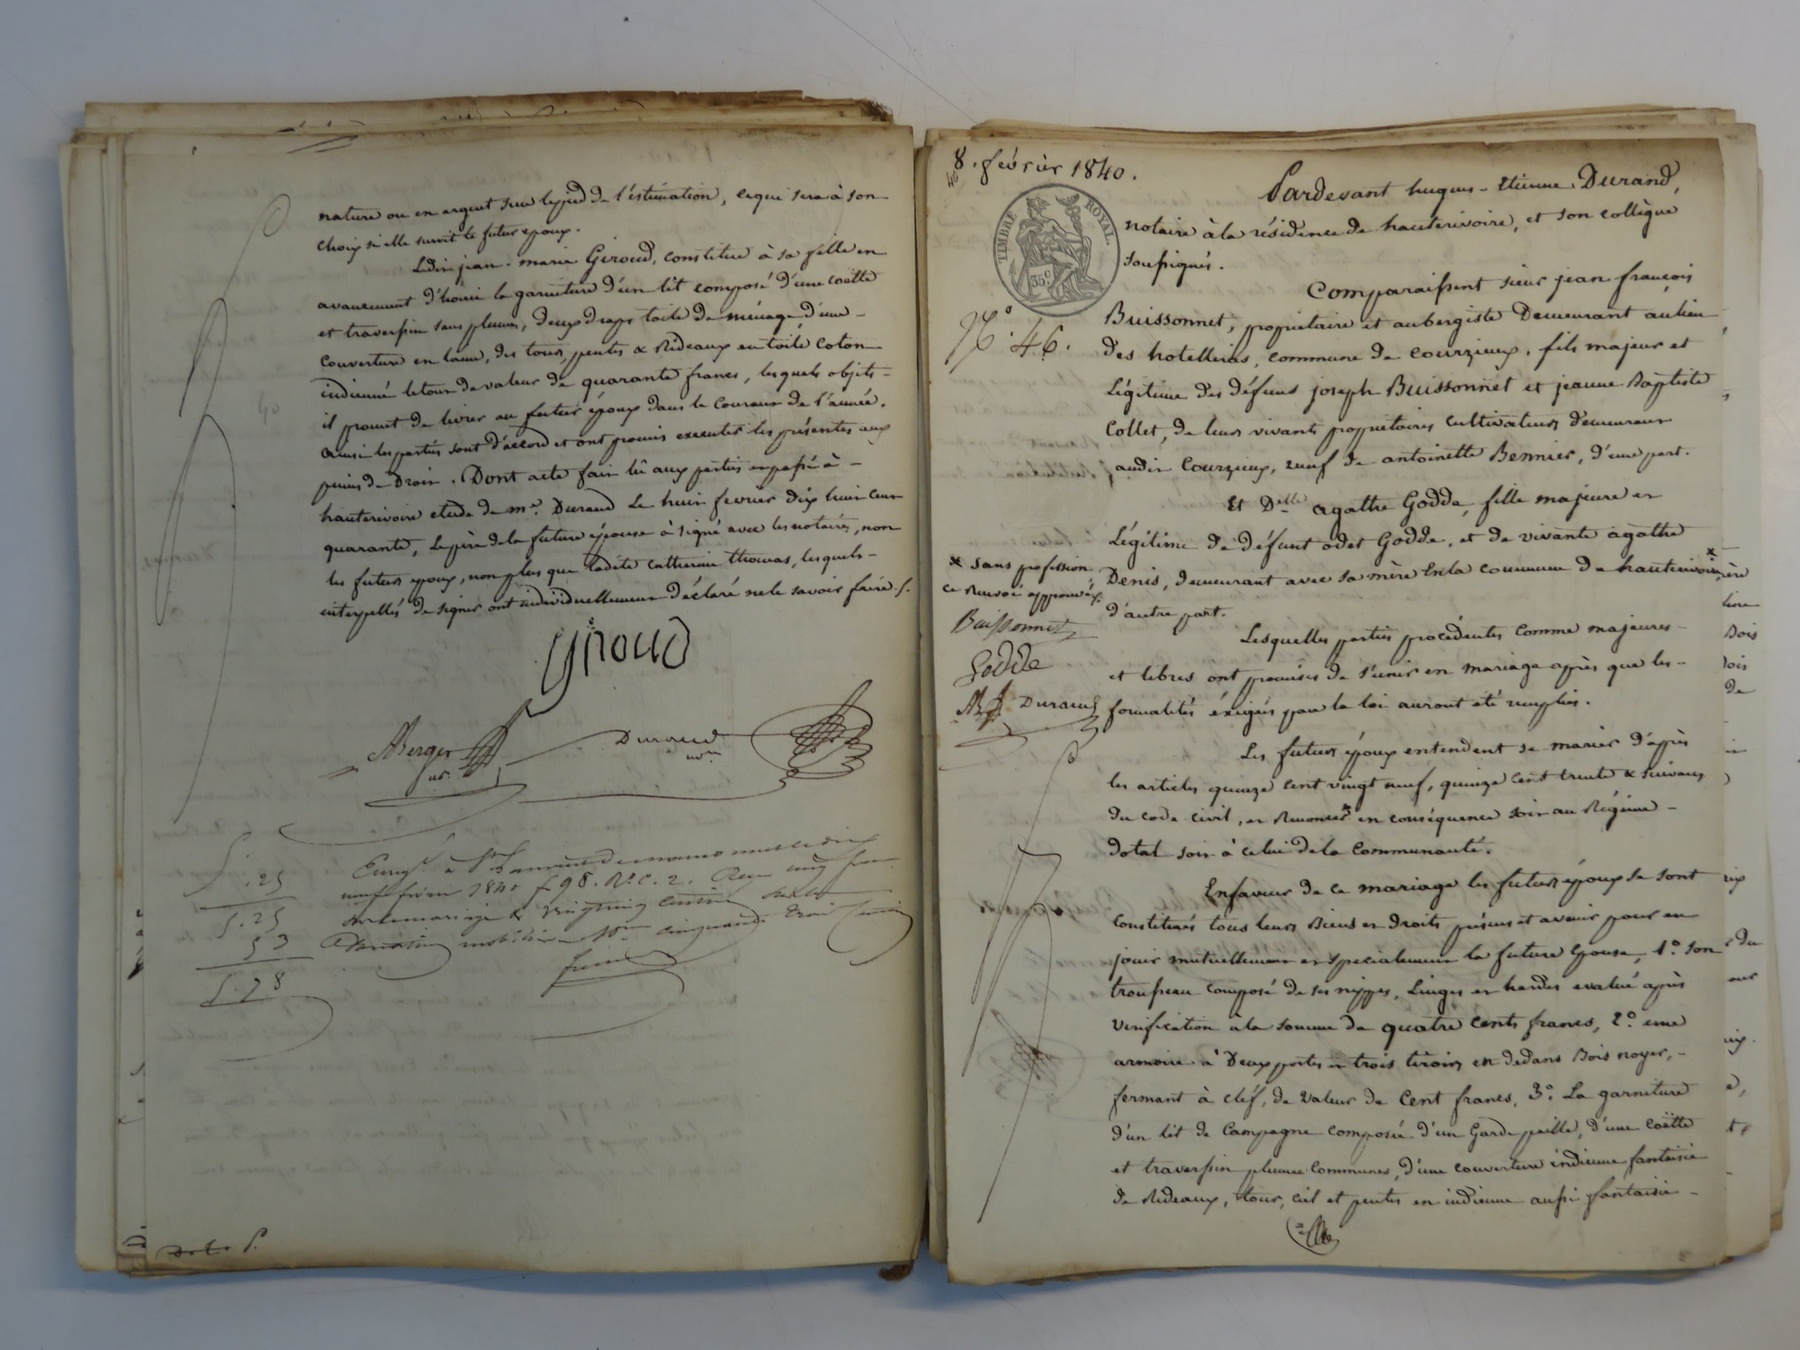 nature ou en argent sur le pied de l'estimation, ce qui sera à son
choix si elle survit le futur époux.
Ledit jean-marie Geroud, constitue à sa fille en
avancement d'hoirie la garniture d'un lit composé d'une coëtte
et traversin sans plumes, deux draps toile de ménage, d'une
couverture en laine, des tours, pentes & Rideaux en toile coton
indienné le tout de valeur de quarante francs, lesquels objets
il promet de livrer au futur époux dans le courant de l'année.
Ainsi les parties sont d'accord et ont promis executer les présentes aux
peines de Droit. Dont acte fait lû aux parties et passé à
hauterivoire etude de me. Durand Le huit fevrier dix huit cent
quarante, Le père de la future épouse à signé avec les notaires, non
les futurs époux, non plus que ladite catherine thomas, lesquels
interpellés de signer ont individuellement déclaré ne le savoir faire /.
Giroud
ABerger Durand
nre. nre
f. 98. Re. C. 2.
.25
5.25
53
5.78
8. février 1840.
Pardevant hugues-etienne Durand,
notaire à la résidence de hauterivoire, et son collègue
soussignés.
TIMBRE ROYAL
35 c.
N° 46.
Comparaissent sieur jean françois
Buissonnet, propriétaire et aubergiste Demeurant au lieu
des hotelleries, commune de courzieux, fils majeur et
Légitime des défunts joseph Buissonnet et jeanne Baptiste
Collet, de leurs vivants propriétaires cultivateurs demeurant
audit Courzieux, veuf de antoinette Bennier, d'une part.
Et Delle agathe Godde, fille majeure et
Légitime de défunt odet Godde, et de vivante agathe
Denis, demeurant avec sa mère en la commune de hauterivoire *
d'autre part.
* sans profession,
ce Renvoi approuvé
Buissonnet
Godde
AB Durand
Lesquelles parties procédantes comme majeures
et libres ont promises de s'unir en mariage après que les
formalités éxigées par la loi auront été remplies.
Les futurs époux entendent se marier d'après
les articles quinze cent vingt neuf, quinze cent trente & suivans
du code civil, et Renoncer en conséquence soit au Régime
dotal soit à celui de la communauté.
En faveur de ce mariage les futurs époux se sont
constitués tous leurs Biens et droits présens et avenir pour en
jouir mutuellement et spécialement la future Epouse, 1° son
trousseau composé de ses nippes, Linges et hardes evalué après
vérification à la somme de quatre cents francs, 2° une
armoire à Deux portes et trois tiroirs en dedans Bois noyer,
fermant à cléf, de valeur de Cent francs, 3° La garniture
d'un lit de Campagne composée d'un Garde paille, d'une coëtte
et traversin plumes communes, d'une couverture indienne fantaisie
de Rideaux, tour, ciel et pentes en indienne aussi fantaisie